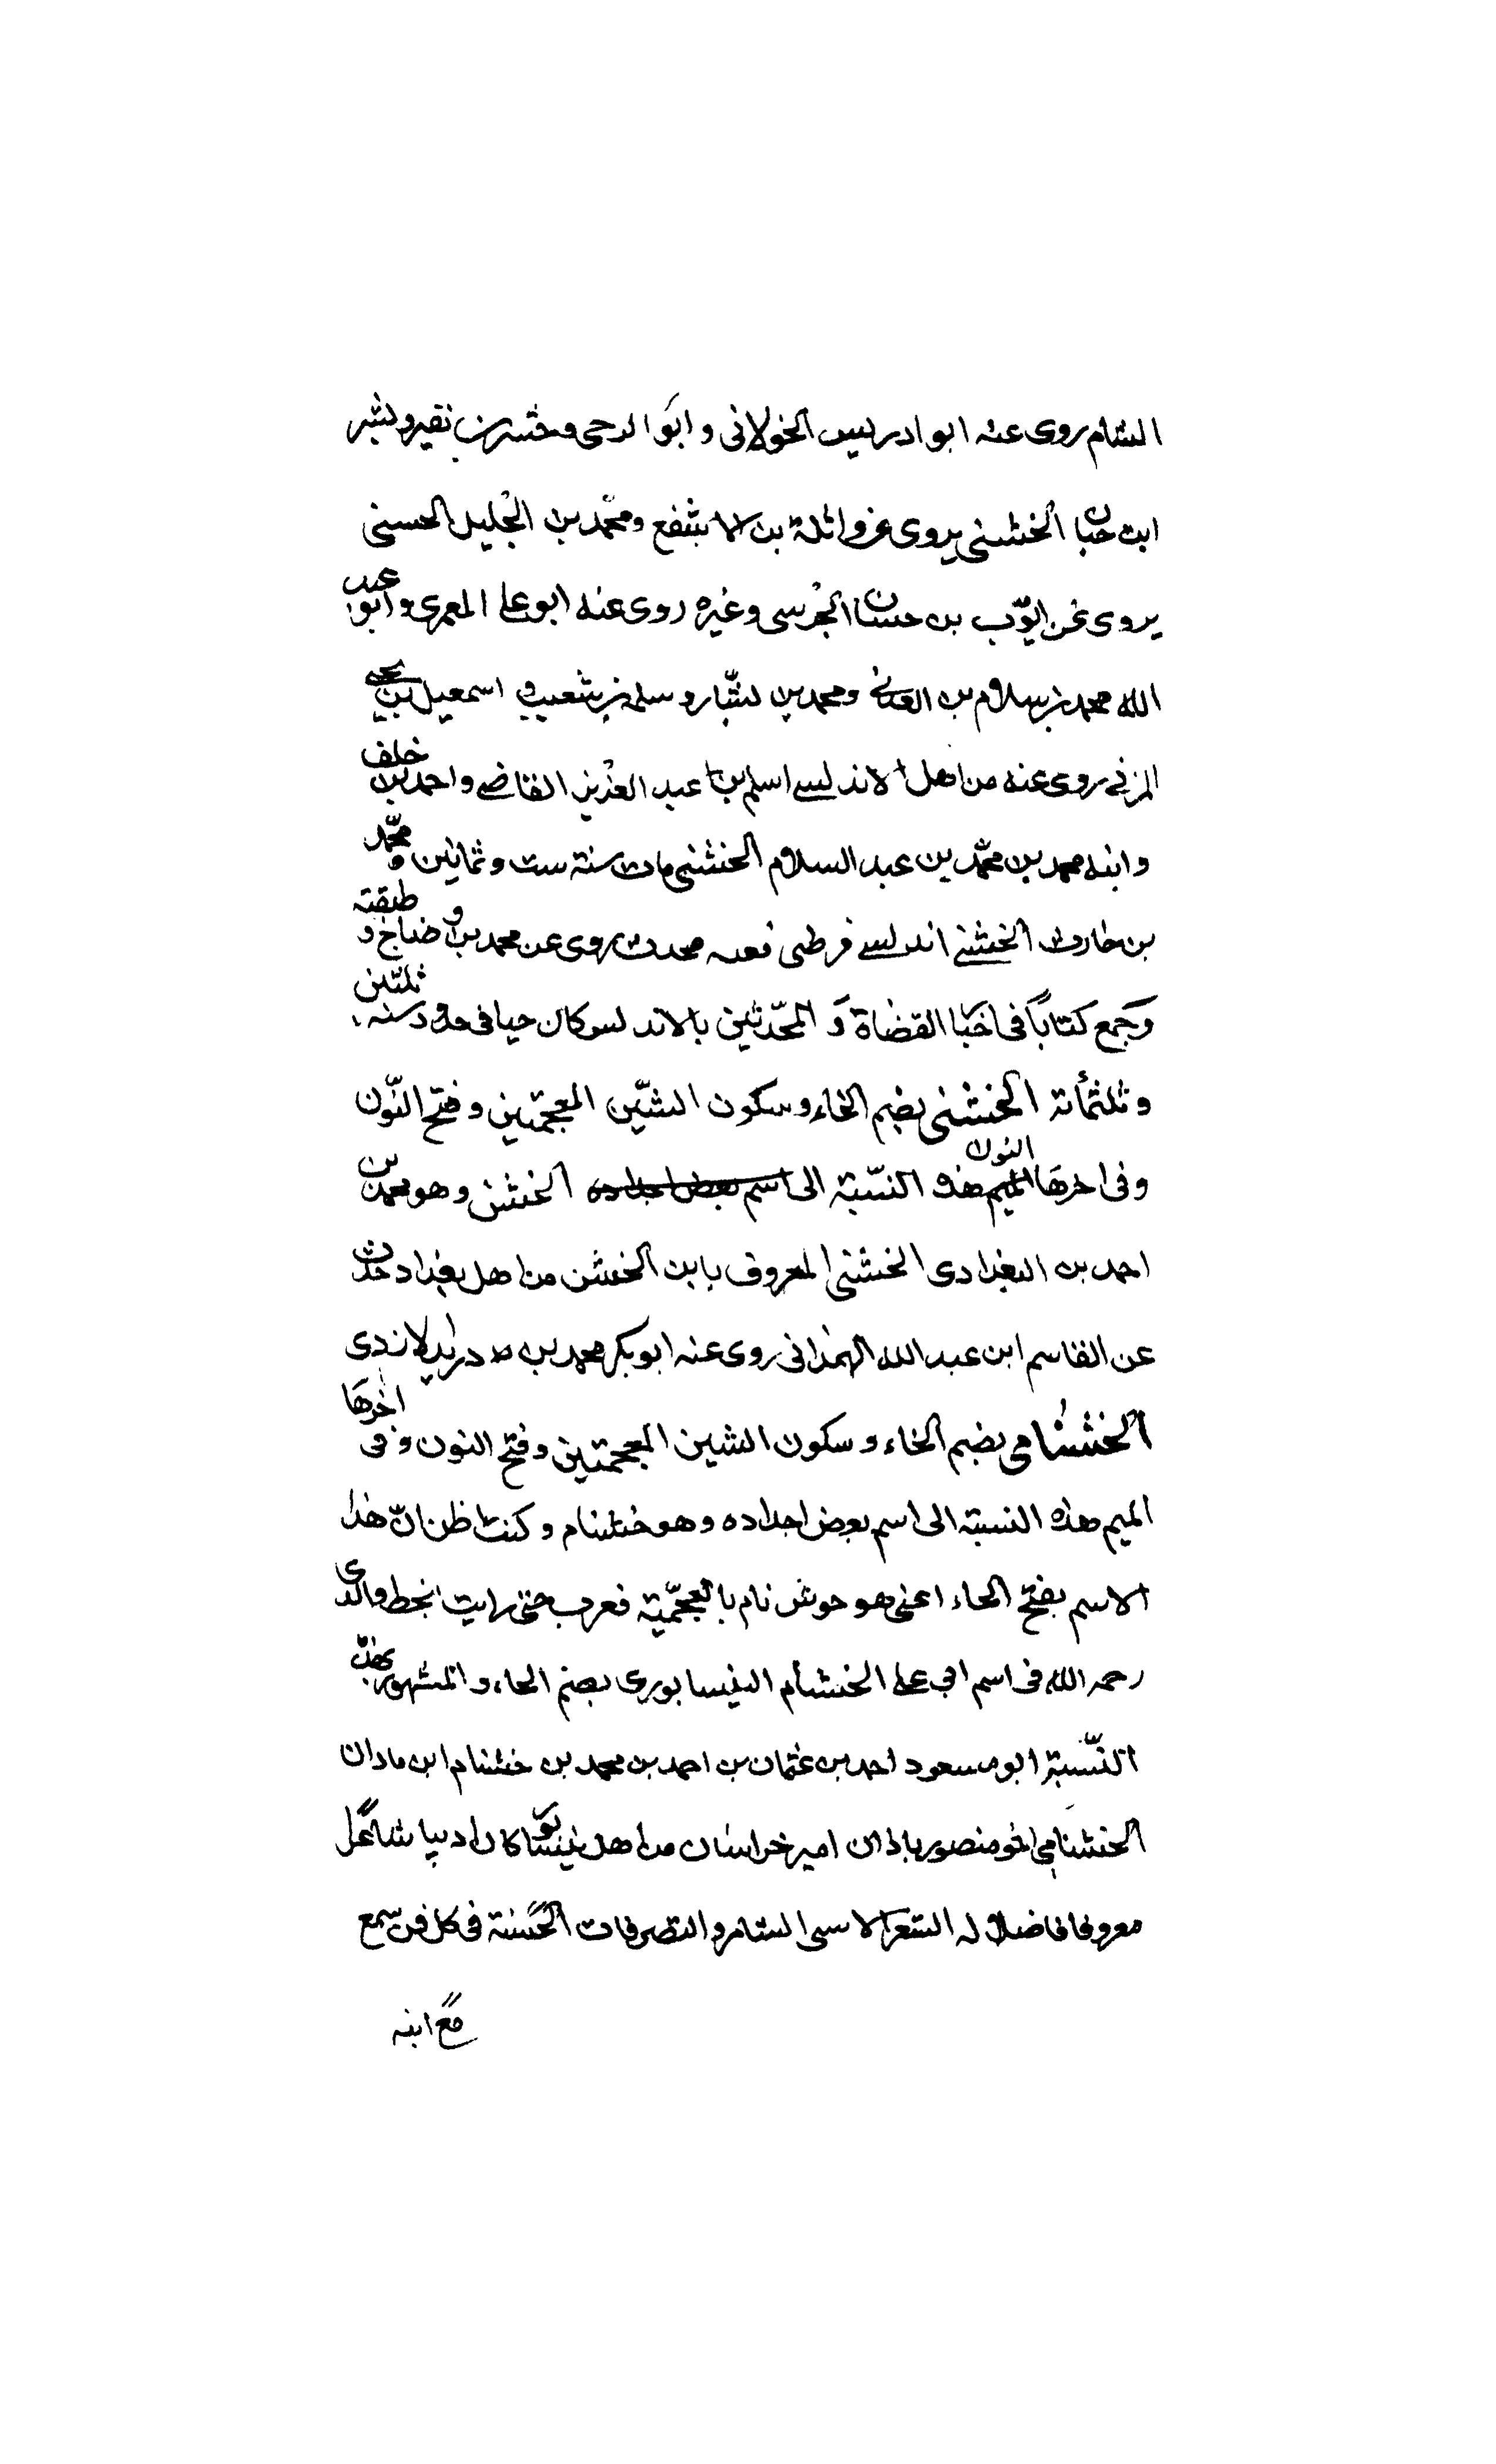 الشام روى عنه ابو ادريس الخولانى و ابو الدحى و نقير و بشير
ابن حبان الخشنى يروى عن واثلة بن الاشفع ومحمد بن الجليل الحسنى
يروى عن ايوب بن حسان الجرسى وغيره روى عنه ابو على المعمرى و ابو عبد
الله محمد بن سلام بن ومحمد بن بشار و سلمة بن شعيب و اسمعيل بن يحيى
المزنى روى عنه من اهل الاندلس اسلم بن عبد العزيز القاضى و احمد بن خلف
و ابنه محمد بن محمد بن عبد السلام الخشنى مات سنة ست و ثمانين و محمد
بن حارث الخشنى اندلسى قرطبى فقيه محدث روى عن محمد بن وضاح و طبقته
وجمع كتاباً فى اخبا القضاة و المحدثين بالاندلس وكان حيا فى حدود سنة ثلثين
و ثلثمائة الخشنى بضم الخاء وسكون الشين المعجمتين و فتح النون
وفى اخرها الميم النون هذه النسبة الى اسم بعض اجداده الخشن وهو محمد بن
احمد بن البغدادى الخشنى المعروف بابن الخشن من اهل بغداد حدث
عن القاسم ابن عبد الله الهمدانى روى عنه ابو بكر محمد بن
الخشنامى بضم الخاء و سكون الشين المعجمتين و فتح النون و فى اخرها
الميم هذه النسبة الى اسم بعض اجداده وهو خشنام و كنت اظن ان هذا
الاسم بفتح الخاء اعنى هو خوش نام بالعجمية فعرب حتى رايت بخط والدى
رحمه الله فى اسم ابى على الخشنام النيسابورى بضم الخاء و المشهور بهذه
النسبة ابو مسعود احمد بن عثمان بن احمد بن محمد بن خشنام ابن ماداان
الخشنامى اخو منصور باذان امير خراسان من اهل نيسابو كان اديبا شاعرا
معروفا فاضلا له الشعر السائر والتصرفات الحسنة فى كل فن سمع
مع ابنه